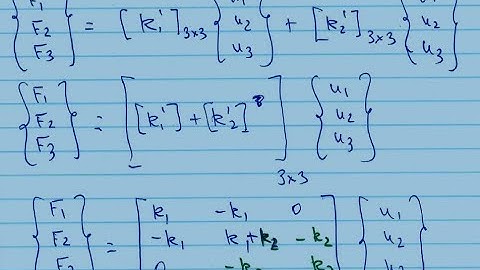 {F1 F2 F3} = [k1']3x3 {u1 u2 u3} + [k2']3x3 {u1 u2 u3}
{F1 F2 F3} = [[k1'] + [k2']]3x3 {u1 u2 u3}
{F1 F2 F3} = [k1 -k1 0
-k1 k1+k2 -k2
0 -k2 k2] {u1 u2 u3}